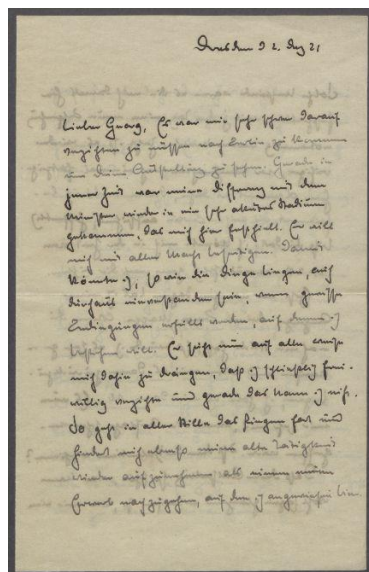 Dresden 2. Dez 21
Lieber Georg, Es war mir sehr schwer darauf
verzichten zu müssen nach Berlin zu kommen
um deine Ausstellung zu sehen. Gerade in
jener Zeit war meine Differenz mit dem
Minister wieder in ein sehr akutes Stadium
gekommen, das mich hier festhielt. Er will
mich mit aller Macht beseitigen. Damit
könnte ich, so wie die Dinge liegen, auch
durchaus einverstanden sein, wenn gewisse
Bedingungen erfüllt werden, auf denen ich
bestehen will. Er sucht nun auf alle
mich dahin zu drängen, daß ich schließlich frei-
willig verzichte und gerade das kann ich nicht.
So geht in aller Stille das Ringen fort und
hindert mich ebenso meine alte Tätigkeit
wieder aufzunehmen als einem neuen
Erwerb nachzugehen, auf den ich angewiesen bin.